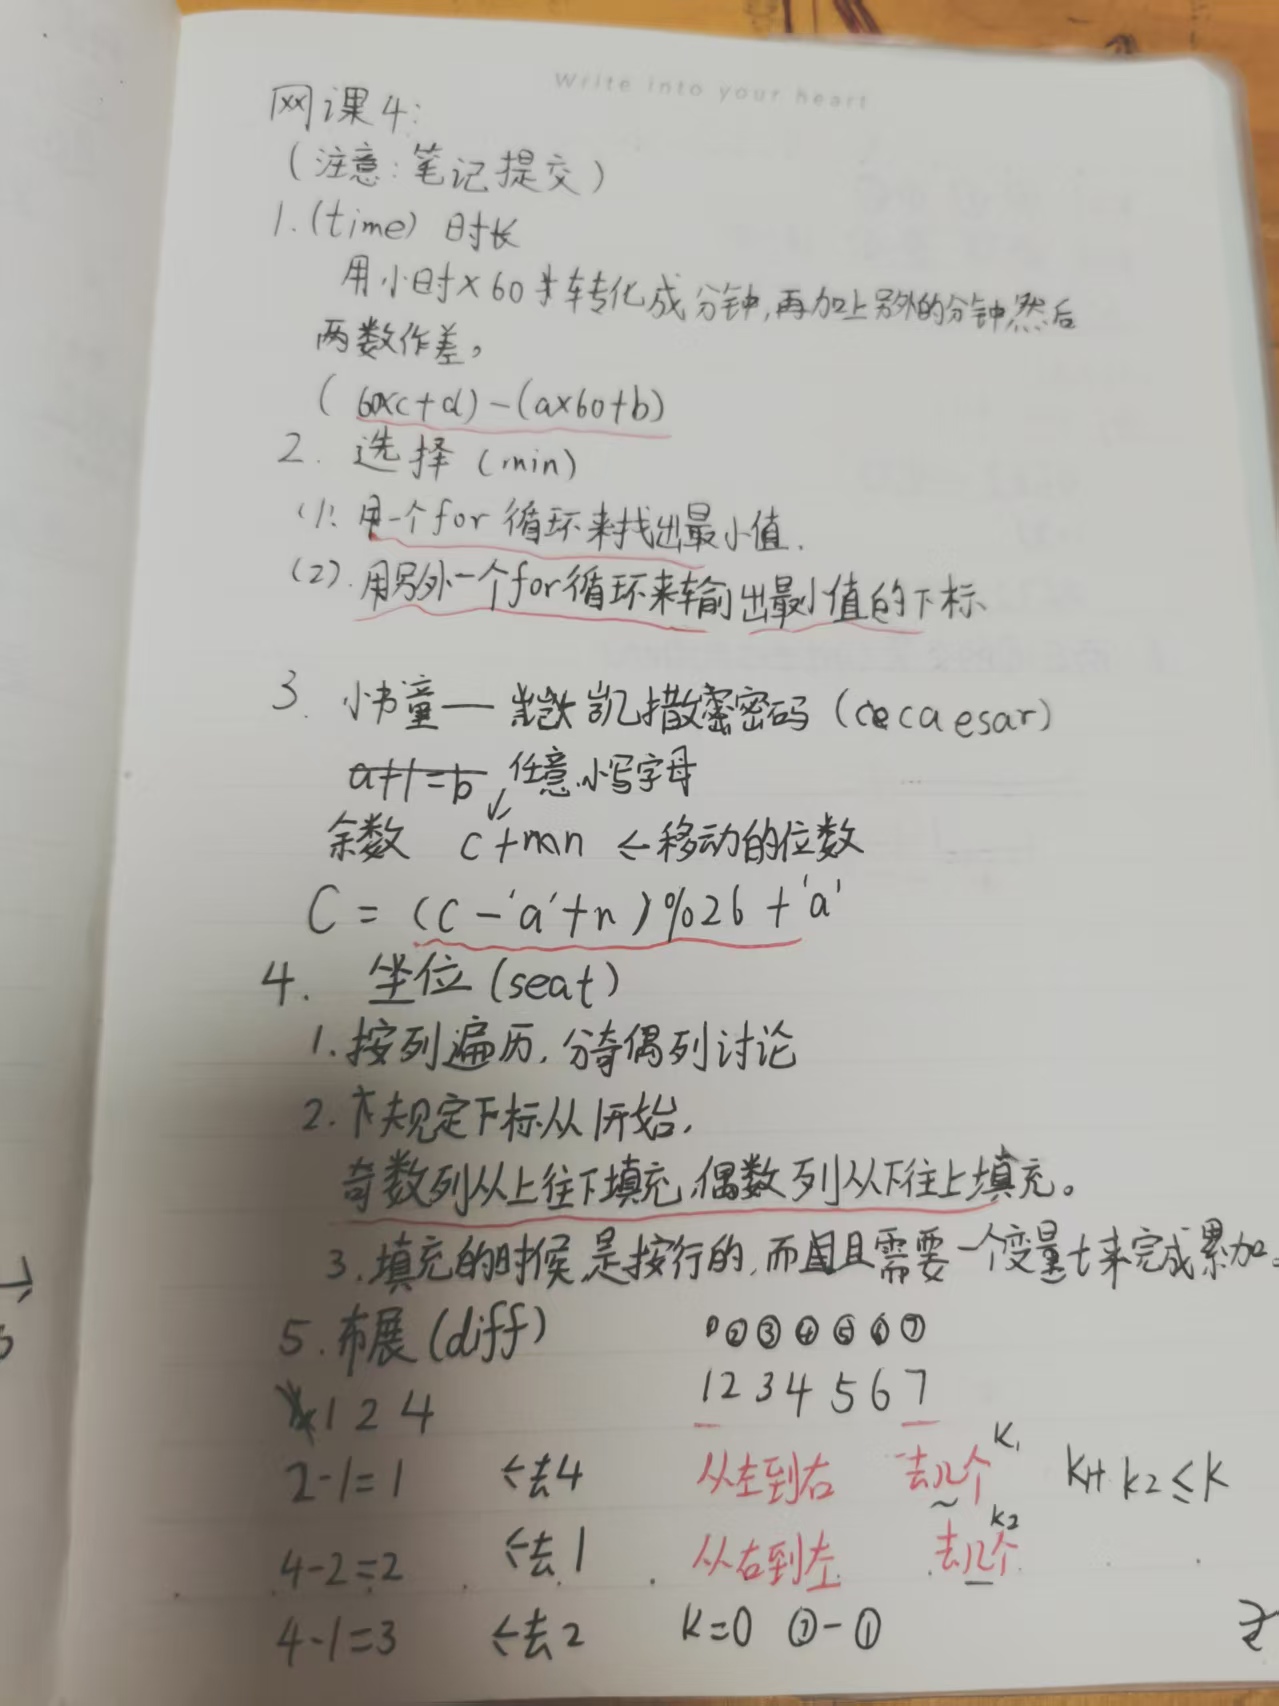 Write into your heart
网课4:
(注意:笔记提交)
1.(time) 时长
用小时×60来转化成分钟,再加上另外的分钟,然后
两数作差。
(60×c+d)-(a×60+b)
2. 选择 (min)
(1). 用一个for循环来找出最小值.
(2). 用另外一个for循环来输出最小值的下标、
3. 小书童— 凯撒密密码 (caesar)
a+1=b 任意小写字母
余数 c+n ←移动的位数
C = (c-'a'+n)%26+'a'
4. 坐位(seat)
1.按列遍历,分奇偶列讨论
2.规定下标从1开始,
奇数列从上往下填充,偶数列从下往上填充。
3.填充的时候,是按行的,而且需要一个变量t来完成累加。
5.布展(diff) ②③④⑤⑥⑦
1 2 4 1 2 3 4 5 6 7
2-1=1 ←去4 从左到右 去几个 K1 K1+K2≤K
4-2=2 ←去1 从右到左 去几个 K2
4-1=3 ←去2 K=0 ⑦-①